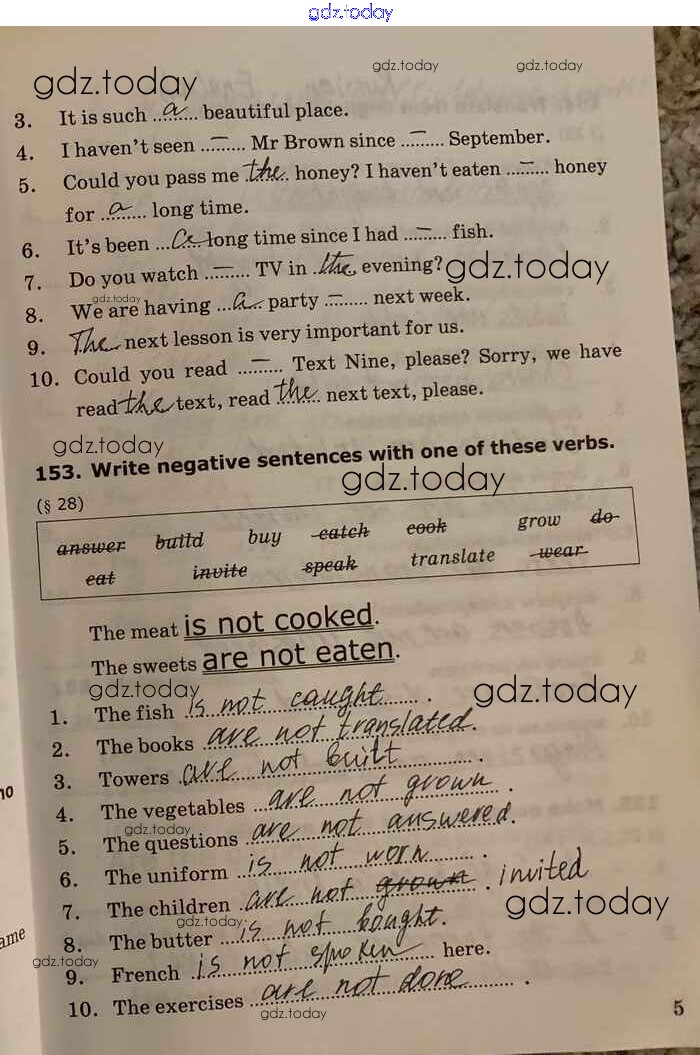 gdz.today
gdz.today
gdz.today gdz.today
3. It is such ...a... beautiful place.
4. I haven't seen ...–... Mr Brown since ...–... September.
5. Could you pass me .the.. honey? I haven't eaten ...–... honey
for ..a... long time.
6. It's been ...a.. long time since I had ...–... fish.
7. Do you watch ...–... TV in ..the.. evening? gdz.today
gdz.today
8. We are having ...a.. party ..–.... next week.
9. .The.. next lesson is very important for us.
10. Could you read ...–... Text Nine, please? Sorry, we have
read the text, read .the.. next text, please.
gdz.today
153. Write negative sentences with one of these verbs.
gdz.today
(§ 28)
answer build buy catch cook grow do
eat invite speak translate wear
The meat is not cooked.
The sweets are not eaten.
gdz.today gdz.today
1. The fish is not caught .
2. The books are not translated.
3. Towers are not built .
4. The vegetables are not grown .
gdz.today
5. The questions are not answered.
6. The uniform is not worn .
7. The children are not grown . invited
gdz.today gdz.today
8. The butter is not bought.
gdz.today
9. French is not spoken here.
10. The exercises are not done .
gdz.today
5
no
ame